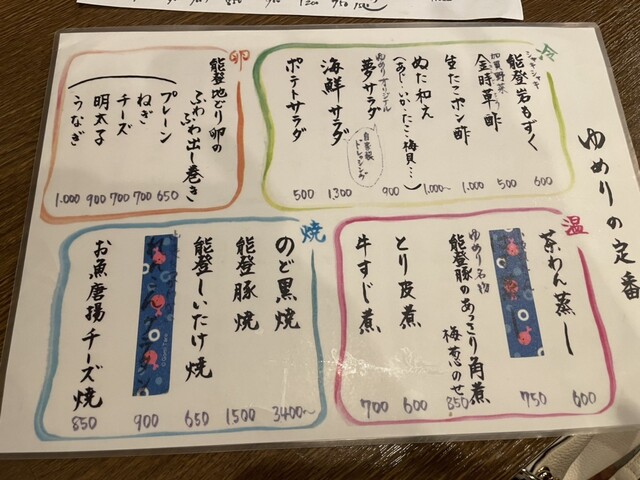 ゆめりの定番
冷
シャキシャキ
能登岩もずく 600
加賀野菜
金時草酢 500
生たこポン酢 1.000
ぬた和え
(あじ…いか…たこ…梅貝…) 1.000~
ゆめりオリジナル
夢サラダ 900
自家製
ドレッシング
海鮮サラダ 1300
ポテトサラダ 500
卵
能登地どり卵の
ふわふわ出し巻き
プレーン 650
ねぎ 700
チーズ 700
明太子 900
うなぎ 1.000
温
茶わん蒸し 600
750
ゆめり名物
能登豚のあっさり角煮
梅葱のせ 850
とり皮煮 600
牛すじ煮 700
焼
のど黒焼 3400~
能登豚焼 1500
能登しいたけ焼 650
900
お魚唐揚チーズ焼 850